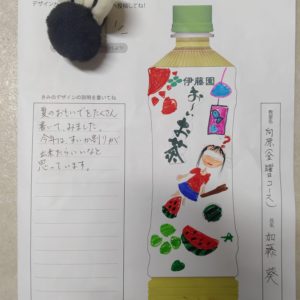 投稿してね!
きみのデザインの説明を書いてね
夏のおもいでをたくさん
書いて、みました。
今年は、すいか割りが
出来たらいいなと
思っています。
伊藤園
お〜いお茶
教室名
向原(金曜コース)
氏名
加藤 葵